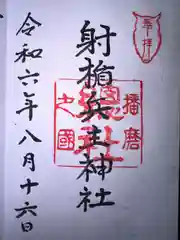 奉拝
射楯兵主神社
播磨
之國
總社
令和六年八月十六日